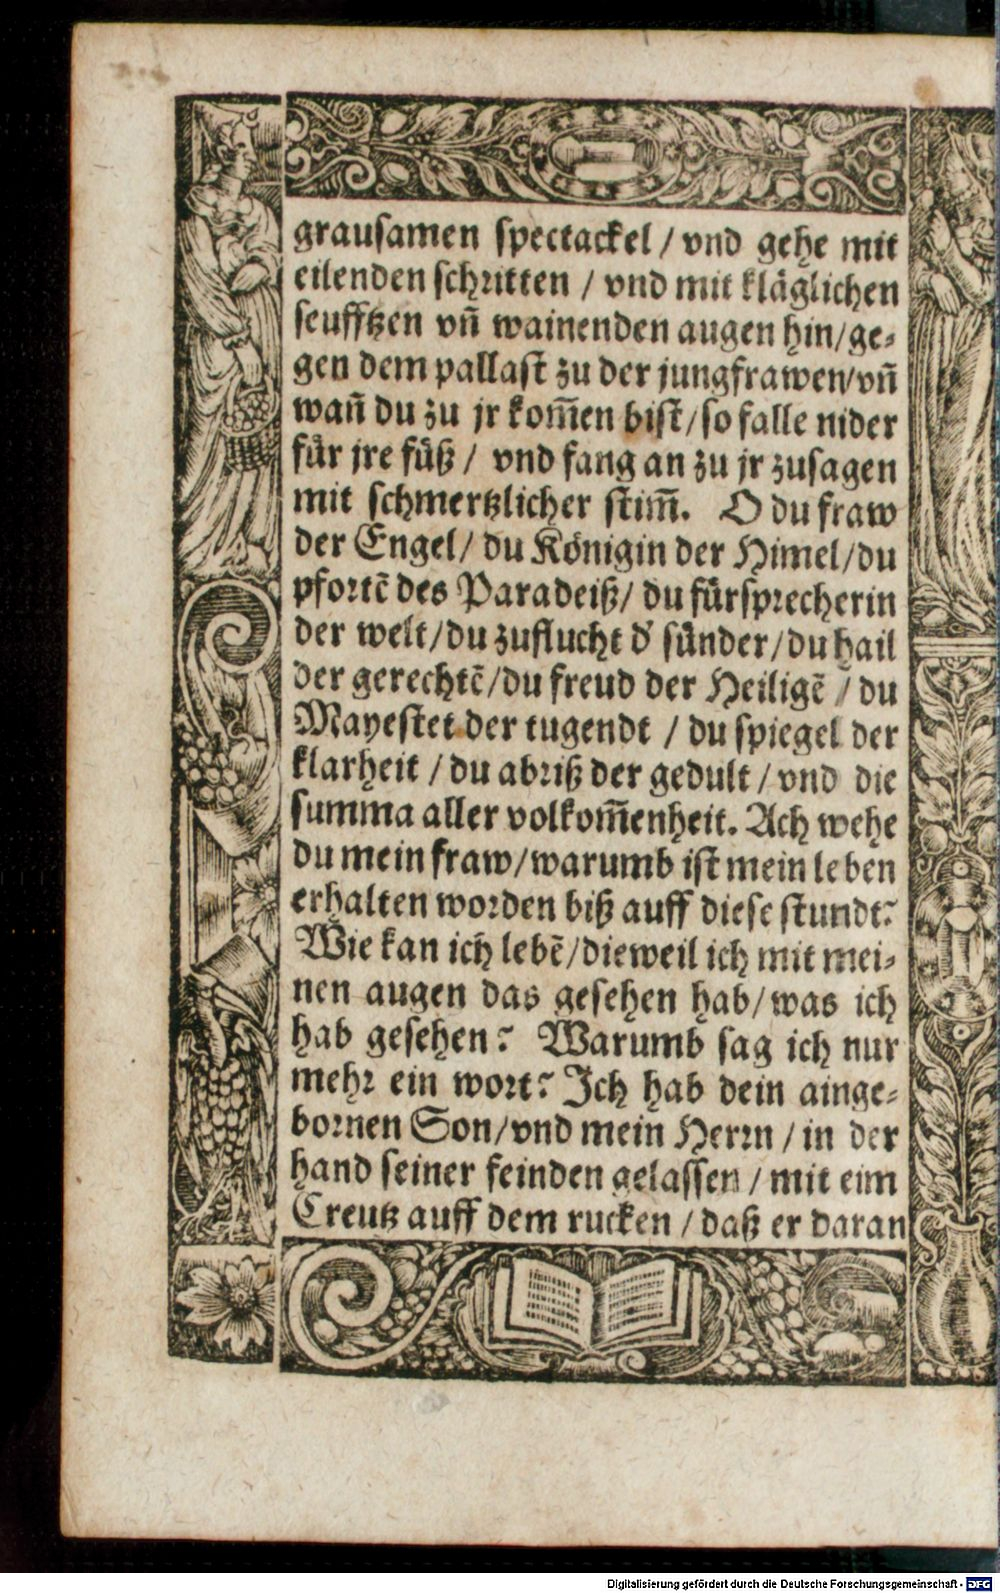 grauſamen ſpectackel / vnd gehe mit
eilenden ſchritten / vnd mit kläglichen
ſeufftzen vn̄ wainenden augen hin/ge⸗
gen dem pallaſt zu der jungfrawen/vn̄
wan̄ du zu jr kom̄en biſt/ſo falle nider
für jre füß / vnd fang an zu jr zuſagen
mit ſchmertzlicher ſtim̄. O du fraw
der Engel/ du Königin der Himel/du
pfortē des Paradeiß/ du fürſprecherin
der welt/du zuflucht d' ſünder/du hail
der gerechtē/du freud der Heiligē / du
Mayeſtet der tugendt / du ſpiegel der
klarheit / du abriß der gedult / vnd die
ſumma aller volkom̄enheit. Ach wehe
du mein fraw/warumb iſt mein leben
erhalten worden biß auff dieſe ſtundt?
Wie kan ich lebē/dieweil ich mit mei⸗
nen augen das geſehen hab/was ich
hab geſehen? Warumb ſag ich nur
mehr ein wort? Ich hab dein ainge⸗
bornen Son/vnd mein Herrn / in der
hand ſeiner feinden gelaſſen / mit eim
Creutz auff dem rucken / daß er daran
Digitalisierung gefördert durch die Deutsche Forschungsgemeinschaft - DFG